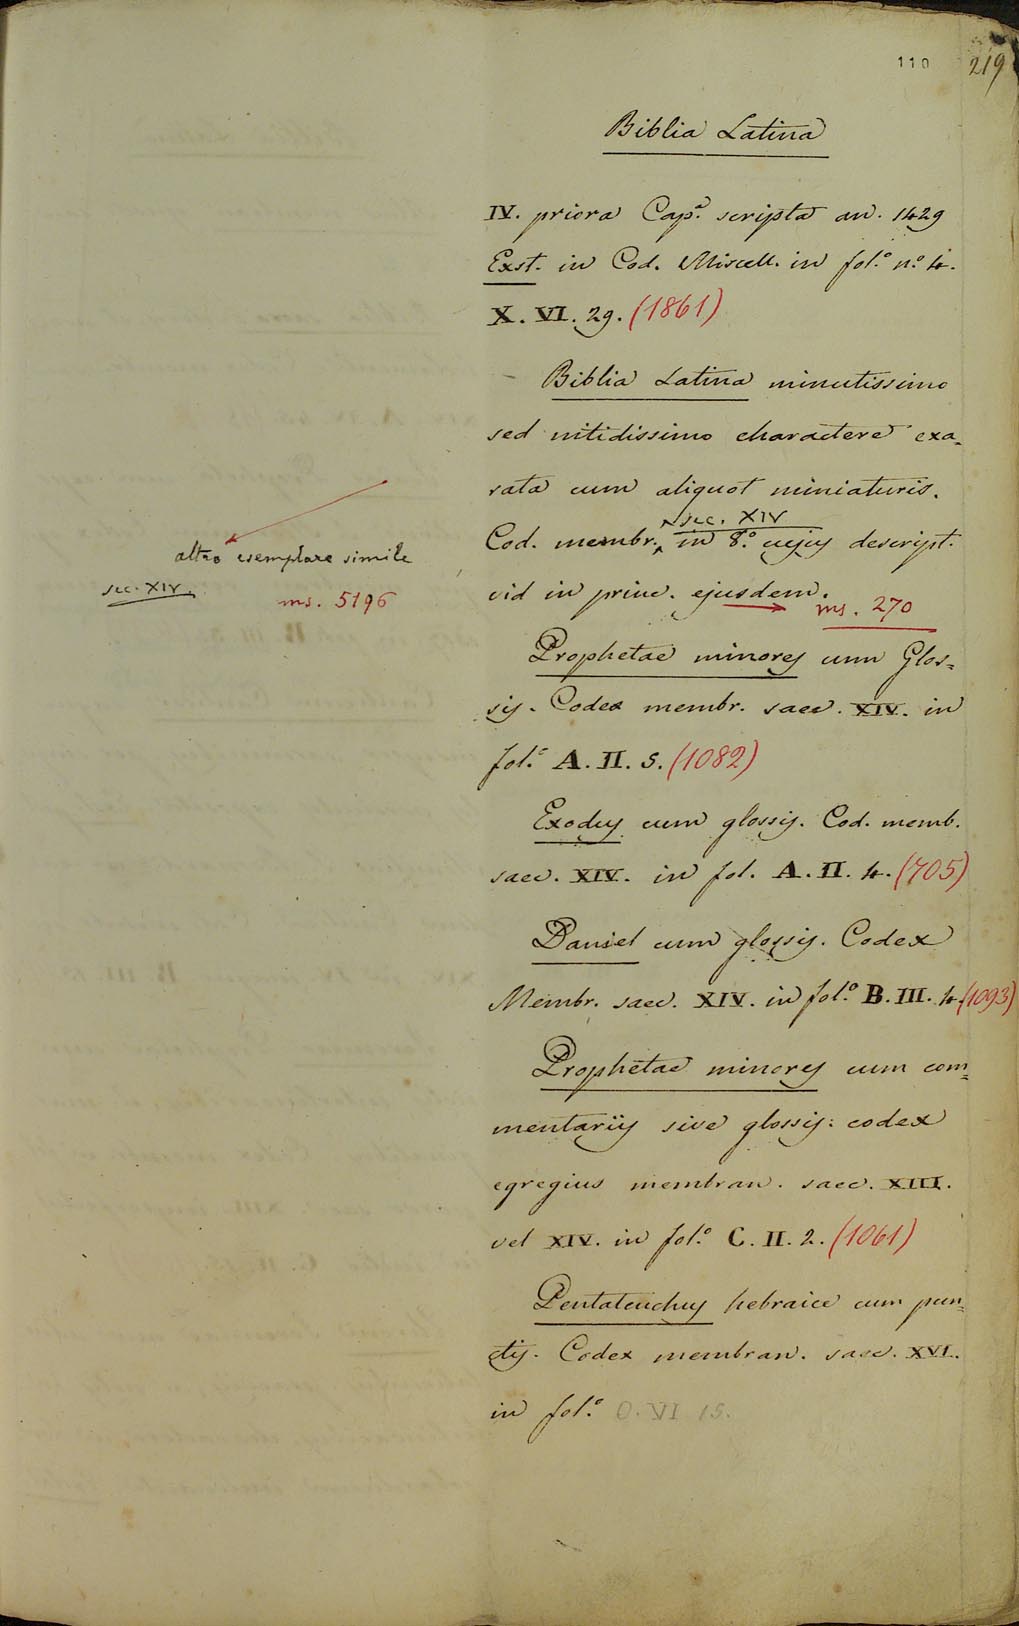 110 219
Biblia Latina
IV. priora Cap.a scripta an. 1429
Exst. in Cod. Miscell. in fol.o n.o 4.
X. VI. 29. (1861)
Biblia Latina minutissimo
sed nitidissimo charactere exa=
rata cum aliquot miniaturis.
sec. XIV
Cod. membr. in 8.o cujus descript.
vid in princ. ejusdem.
ms. 270
altro esemplare simile
sec. XIV.
ms. 5196
Prophetae minores cum Glos=
sis. Codex membr. saec. XIV. in
fol.o A. II. 5. (1082)
Exodus cum glossis. Cod. memb.
saec. XIV. in fol. A. II. 4. (705)
Daniel cum glossis. Codex
Membr. saec. XIV. in fol.o B. III. 4. (1093)
Prophetae minores cum com=
mentariis sive glossis: codex
egregius membran. saec. XIII.
vel XIV. in fol.o C. II. 2. (1061)
Pentateuchus hebraice cum pun=
ctis. Codex membran. saec. XVI.
in fol.o O. VI 15.